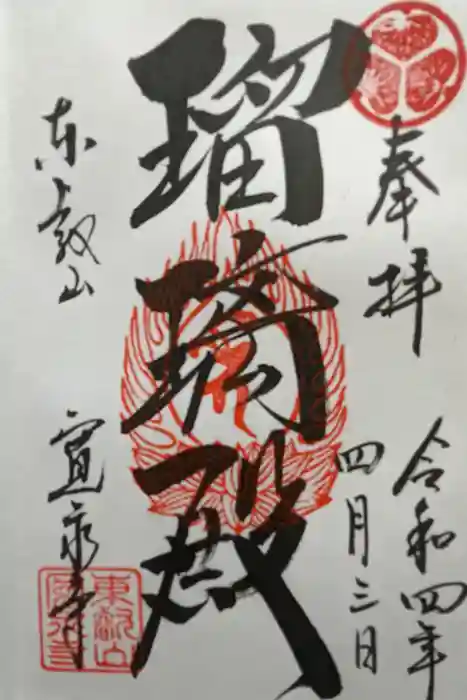 奉拝
令和四年
四月三日
瑠璃殿
东叡山
寛永寺
東叡山